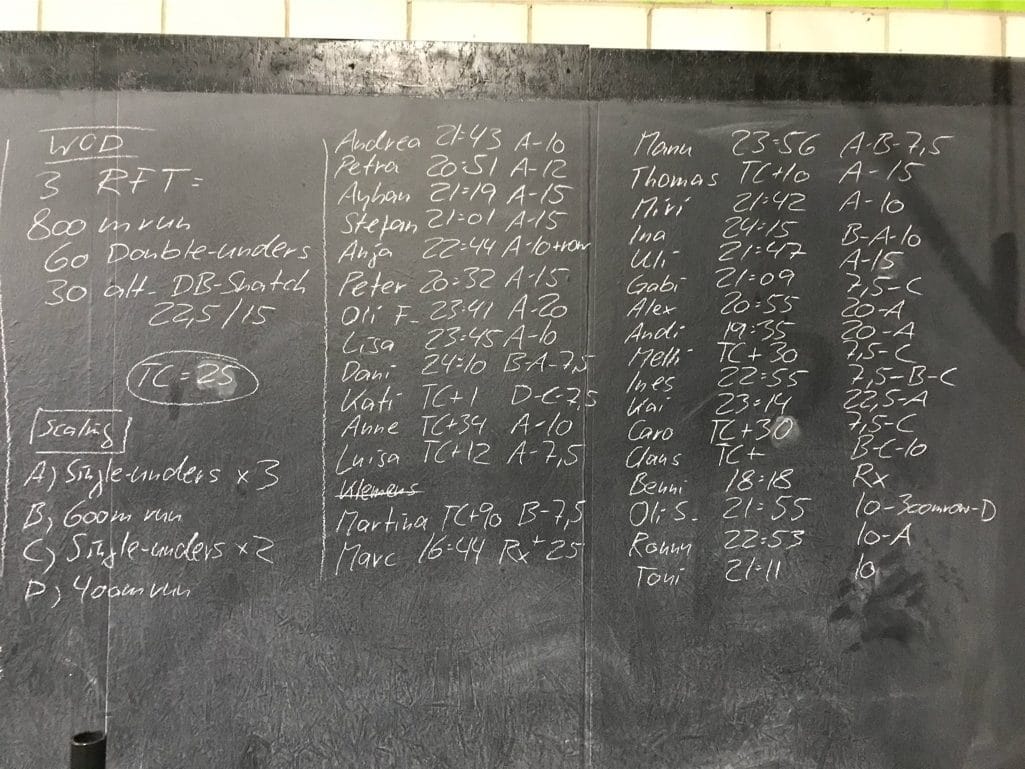 WOD
3 RFT:
800 m run
60 Double-unders
30 alt. DB-Snatch
22,5/15
TC = 25
Scaling
A) Single-unders x 3
B) 600m run
C) Single-unders x 2
D) 400m run
Andrea 21:43 A-10
Petra 20:51 A-12
Ayhan 21:19 A-15
Stefan 21:01 A-15
Anja 22:44 A-10+row
Peter 20:32 A-15
Oli F. 23:41 A-20
Lisa 23:45 A-10
Dani 24:10 B-A-7,5
Kati TC+1 D-C-7,5
Anne TC+34 A-10
Luisa TC+12 A-7,5
Klemens
Martina TC+90 B-7,5
Marc 16:44 Rx+ 25
Manu 23:56 A-B-7,5
Thomas TC+10 A-15
Miri 21:42 A-10
Ina 24:15 B-A-10
Uli 21:47 A-15
Gabi 21:09 7,5-C
Alex 20:55 20-A
Andi 19:35 20-A
Melli TC+30 7,5-C
Ines 22:55 7,5-B-C
Kai 23:14 22,5-A
Caro TC+30 7,5-C
Claus TC+ B-C-10
Benni 18:18 Rx
Oli S. 21:55 10-300mrow-D
Ronny 22:53 10-A
Toni 21:11 10